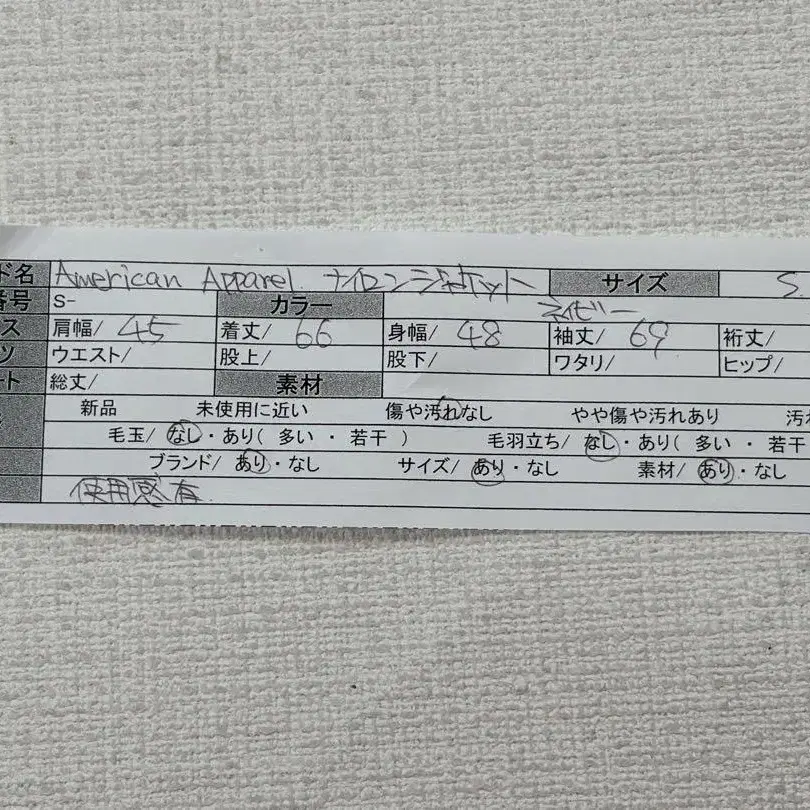 ド名 American Apparel ナイロンジャケット サイズ S
番号 S- カラー ネイビー
ス 肩幅/ 45 着丈/ 66 身幅/ 48 袖丈/ 69 裄丈/
ツ ウエスト/ 股上/ 股下/ ワタリ/ ヒップ/
ート 総丈/ 素材
新品 未使用に近い 傷や汚れなし やや傷や汚れあり 汚れ
毛玉/ なし・あり( 多い ・ 若干 ) 毛羽立ち/ なし・あり( 多い ・ 若干
ブランド/ あり・なし サイズ/ あり・なし 素材/ あり・なし
使用感有